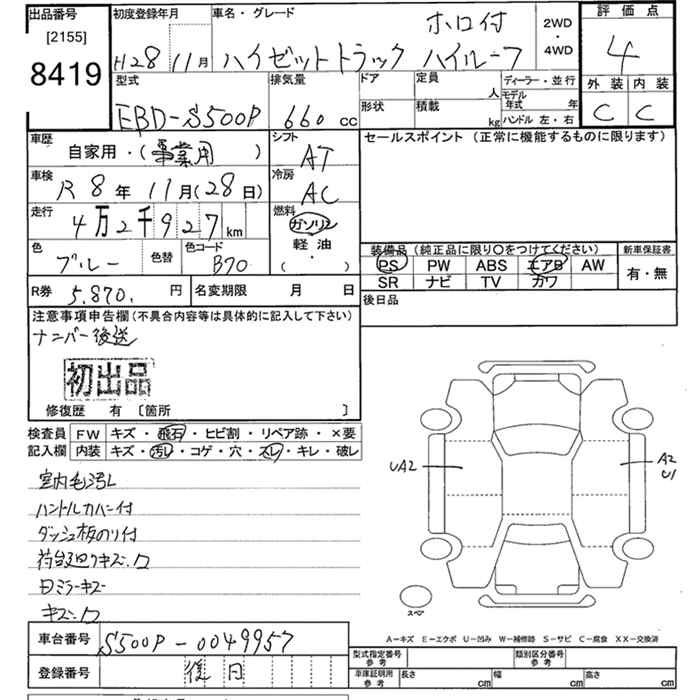 出品番号
[2155]
8419
初度登録年月
H28 11月
車名・グレード
ホロ付
ハイゼットトラック ハイルーフ
2WD
・
4WD
評価点
4
外装 内装
C C
型式
EBD-S500P
排気量
660 cc
ドア
形状
定員
人
積載
kg
ディーラー・並行
モデル年式 年
ハンドル 左・右
車歴
自家用・(事業用)
車検
R 8年 11月(28日)
走行
4万2千927km
色
ブルー
色替
色コード
B70
シフト
AT
冷房
AC
燃料
ガソリン
軽油
( ・ )
セールスポイント (正常に機能するものに限ります)
装備品 (純正品に限り○をつけてください)
PS PW ABS エアB AW
SR ナビ TV カワ
新車保証書
有・無
R券 5,870. 円
名変期限 月 日
後日品
注意事項申告欄(不具合内容等は具体的に記入して下さい)
ナンバー後送
初出品
修復歴 有 〔箇所 〕
検査員 FW キズ・飛石・ヒビ割・リペア跡・×要
記入欄 内装 キズ・汚レ・コゲ・穴・スレ・キレ・破レ
室内毛汚レ
ハンドルカバー付
ダッシュ板のり付
荷台廻りキズ
ミラーキズ
UA2
A2
U1
スペア
A-キズ E-エクボ U-凹み W-補修跡 S-サビ C-腐食 XX-交換済
車台番号 S500P-0049957
登録番号 後日
型式指定番号 参考
類別区分番号 参考
車庫証明用 参考 長さ cm 幅 cm 高さ cm